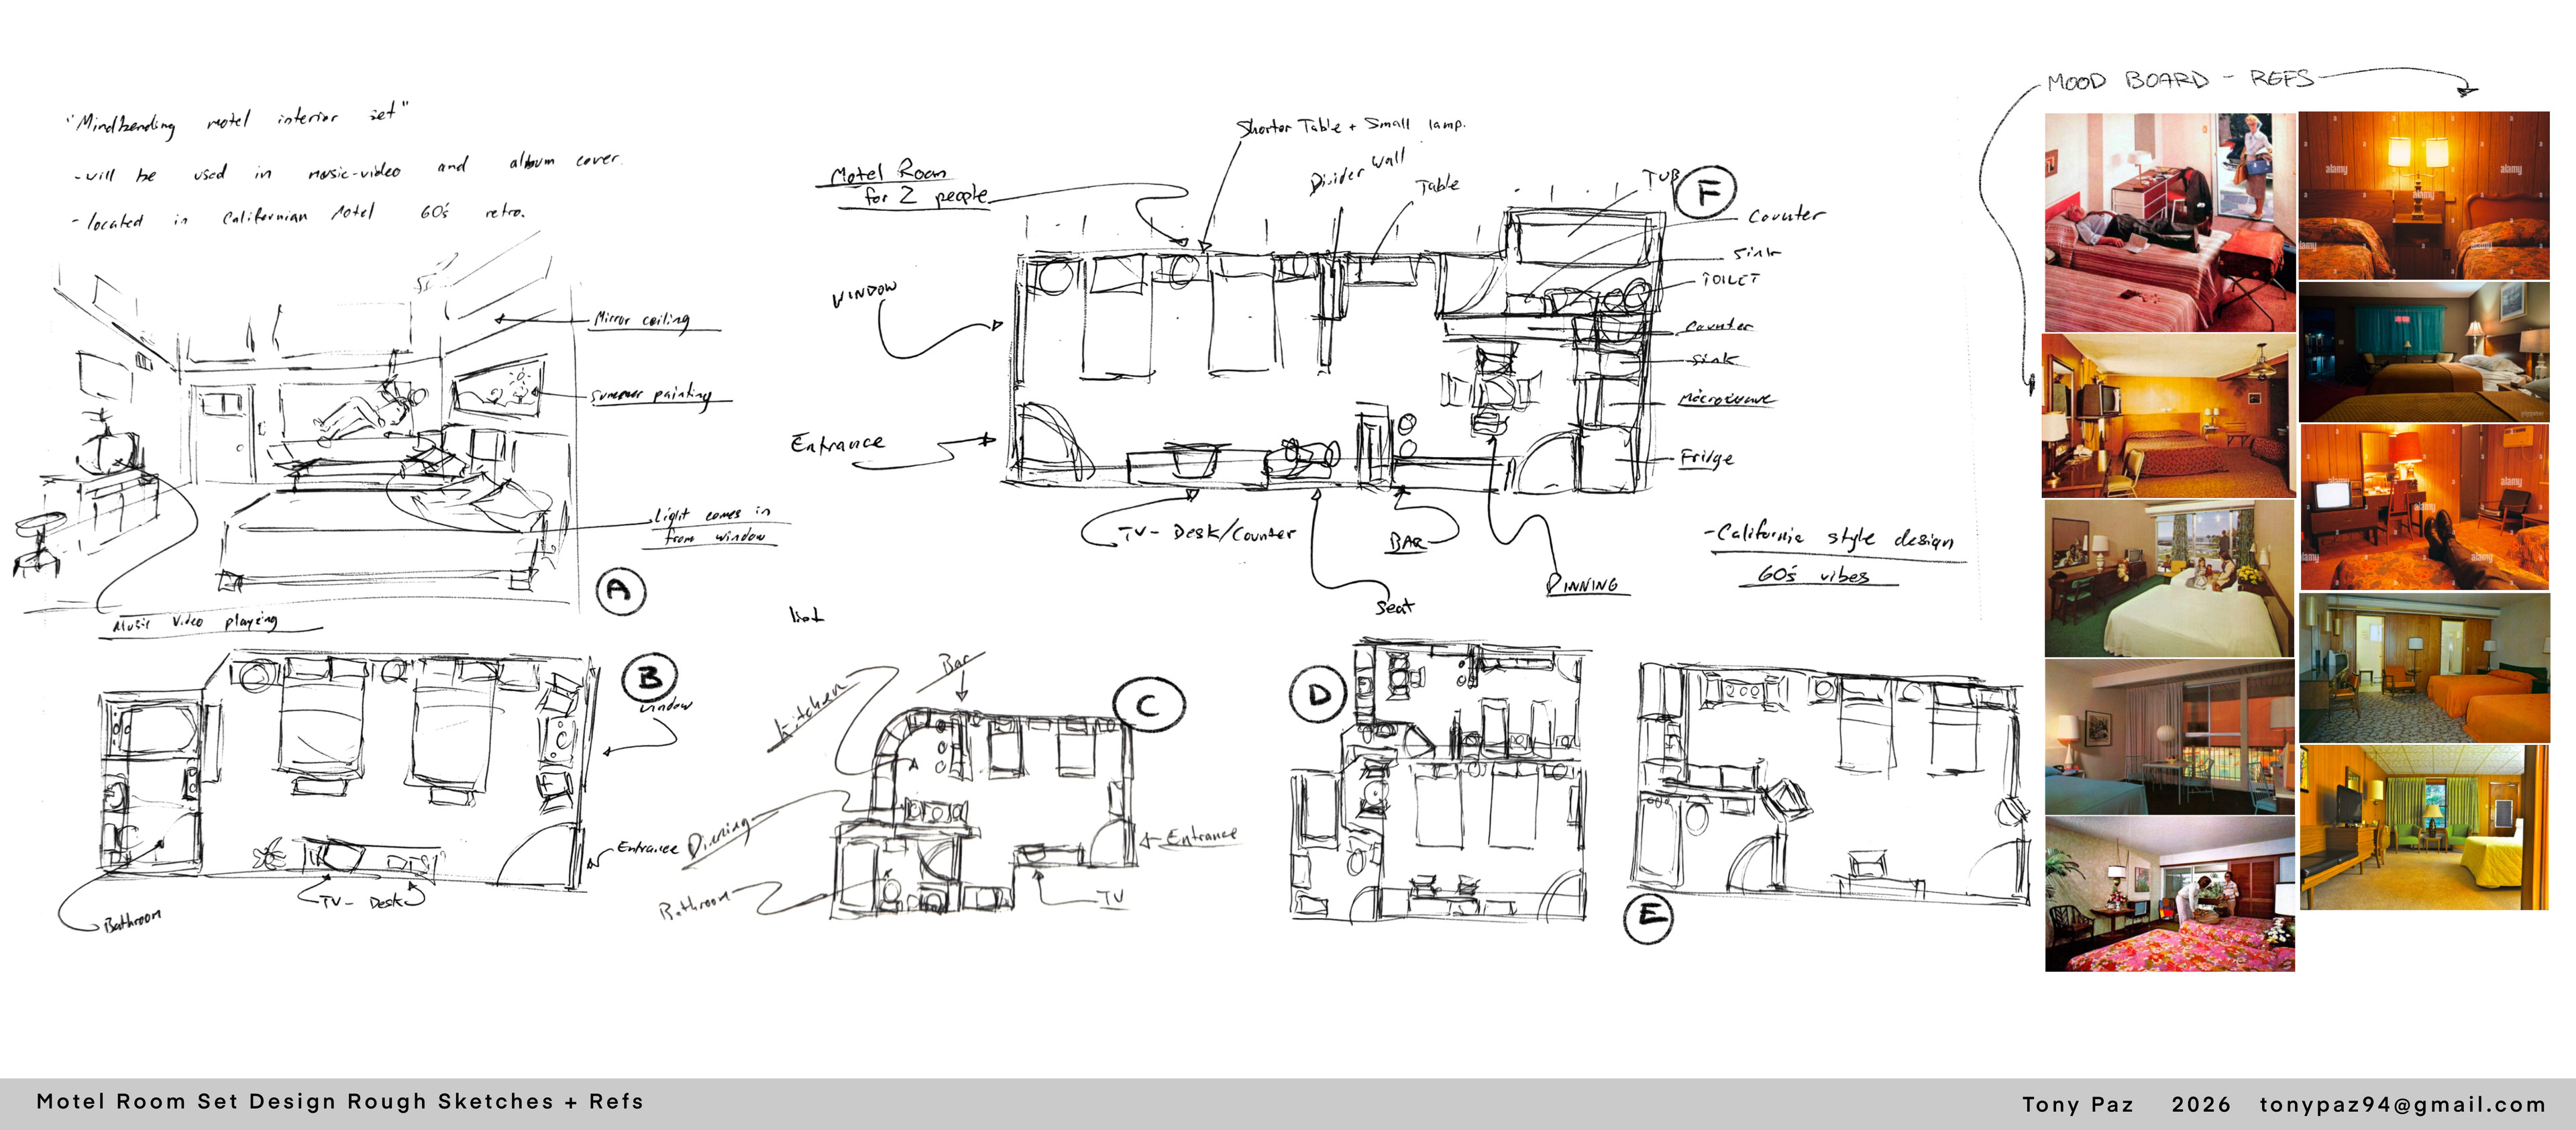 "Mindbending motel interior set"
-will be used in music-video and album cover.
-located in Californian Motel 60's retro.
Mirror ceiling
Summer painting
Light comes in
from window
A
Music Video playing
Motel Room
for 2 people
Shorter Table + Small lamp.
Divider Wall
Table
TUB
F
Counter
Sink
TOILET
Counter
Sink
Microwave
Fridge
WINDOW
Entrance
TV- Desk/Counter
BAR
Seat
DINNING
-California style design
60's vibes
B
Window
Entrance
TV- Desk
Bathroom
Kitchen
Bar
C
Dinning
Entrance
Bathroom
TV
D
E
MOOD BOARD - REFS
alamy
alamy
alamy
alamy
alamy
alamy
alamy
alamy
alamy
alamy
Motel Room Set Design Rough Sketches + Refs
Tony Paz 2026 tonypaz94@gmail.com